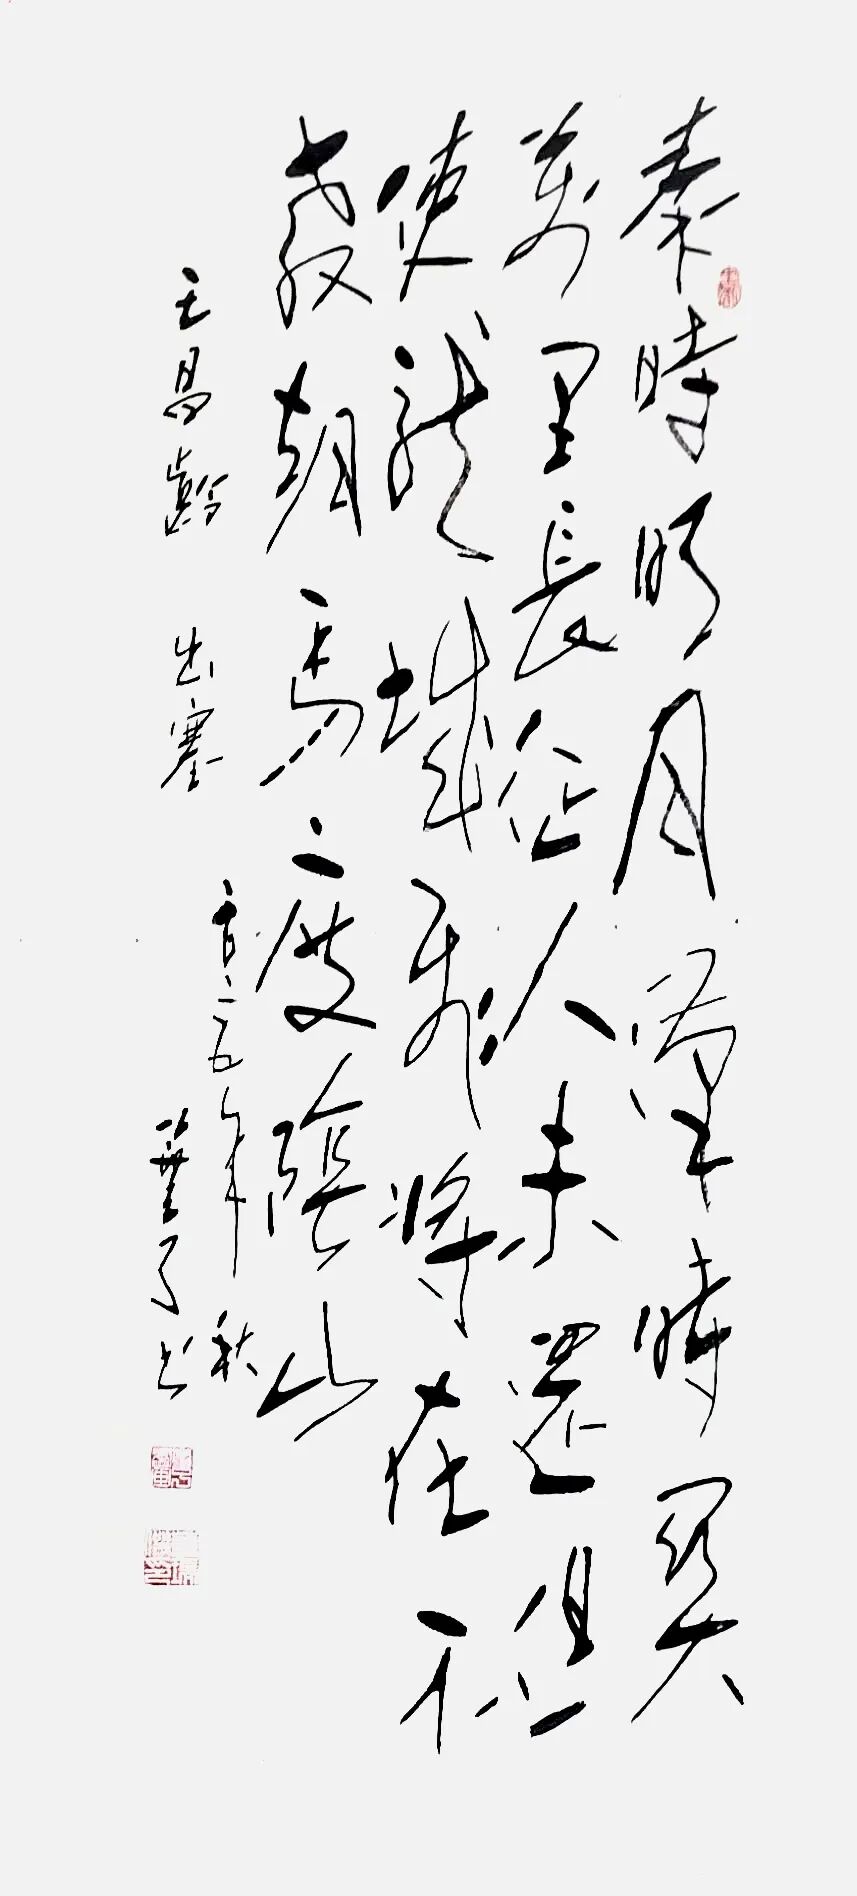 秦時明月漢時關
萬里長征人未還但
使龍城飛將在不
教胡馬度陰山
王昌齡 出塞
二五年秋
书